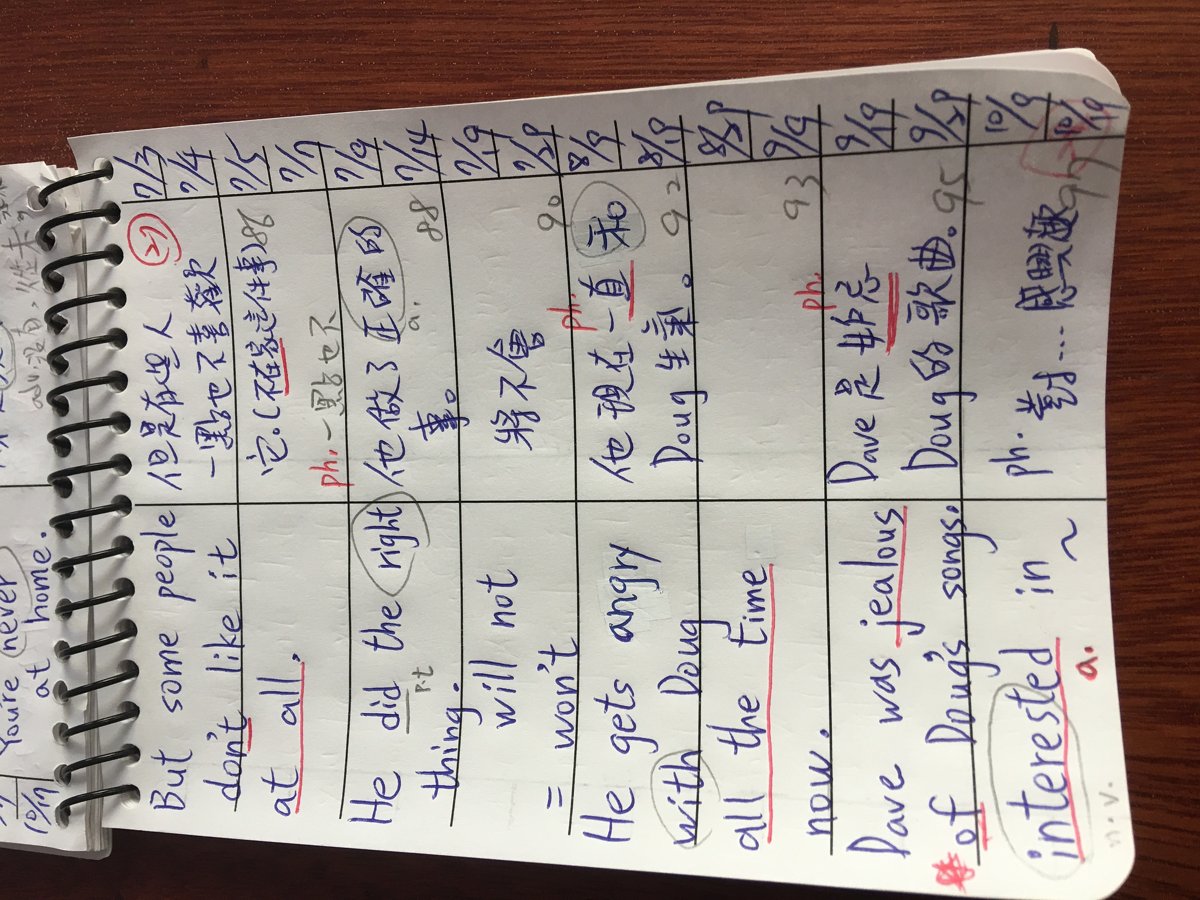 You're never
at home.
10/19
adv. 沒有, 從未
But some people 但是有些人 27 7/3
don't like it 一點也不喜歡 7/4
at all. 它。(不在家這件事) 86 7/5
ph. 一點也不 7/7
He did the right 他做了正確的 7/9
p.t a. 88
thing. 事。 7/14
will not 將不會 7/19
= won't 90 7/29
ph.
He gets angry 他現在一直和 8/9
with Doug Doug生氣。 92 8/19
all the time 8/29
now. 93 9/9
ph.
Dave was jealous Dave是妒忌 9/19
of Doug's songs. Doug的歌曲。 95 9/29
interested in ~ ph. 對…感興趣 97 10/9
10/19
n.v. a.